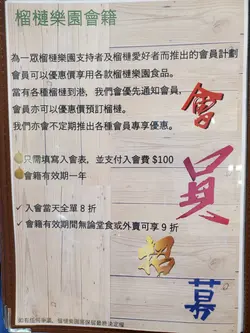 榴槤樂園會籍
為一眾榴槤樂園支持者及榴槤愛好者而推出的會員計劃
會員可以優惠價享用各款榴槤樂園食品。
當有各種榴槤到港，我們會優先通知會員，
會員亦可以優惠價預訂榴槤。
我們亦會不定期推出各種會員專享優惠。
只需填寫入會表，並支付入會費 $100
會籍有效期一年
✓ 入會當天全單 8 折
✓ 會籍有效期間無論堂食或外賣可享 9 折
會
員
招
募
如有任何爭議，榴槤樂園保留最終決定權